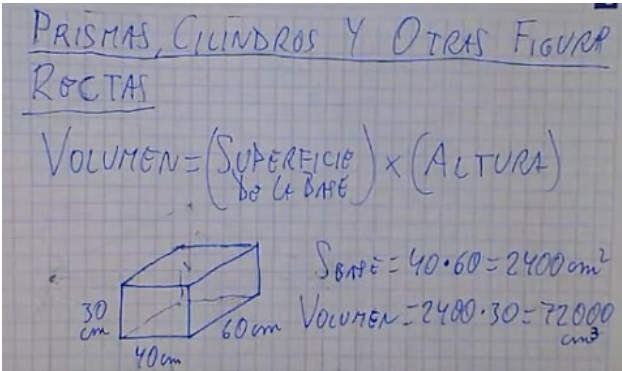 PRISMAS, CILINDROS Y OTRAS FIGURA
RECTAS
VOLUMEN = (SUPERFICIE DE LA BASE) × (ALTURA)
30 cm
40 cm
60 cm
SBASE = 40·60 = 2400 cm²
VOLUMEN = 2400·30 = 72000 cm³